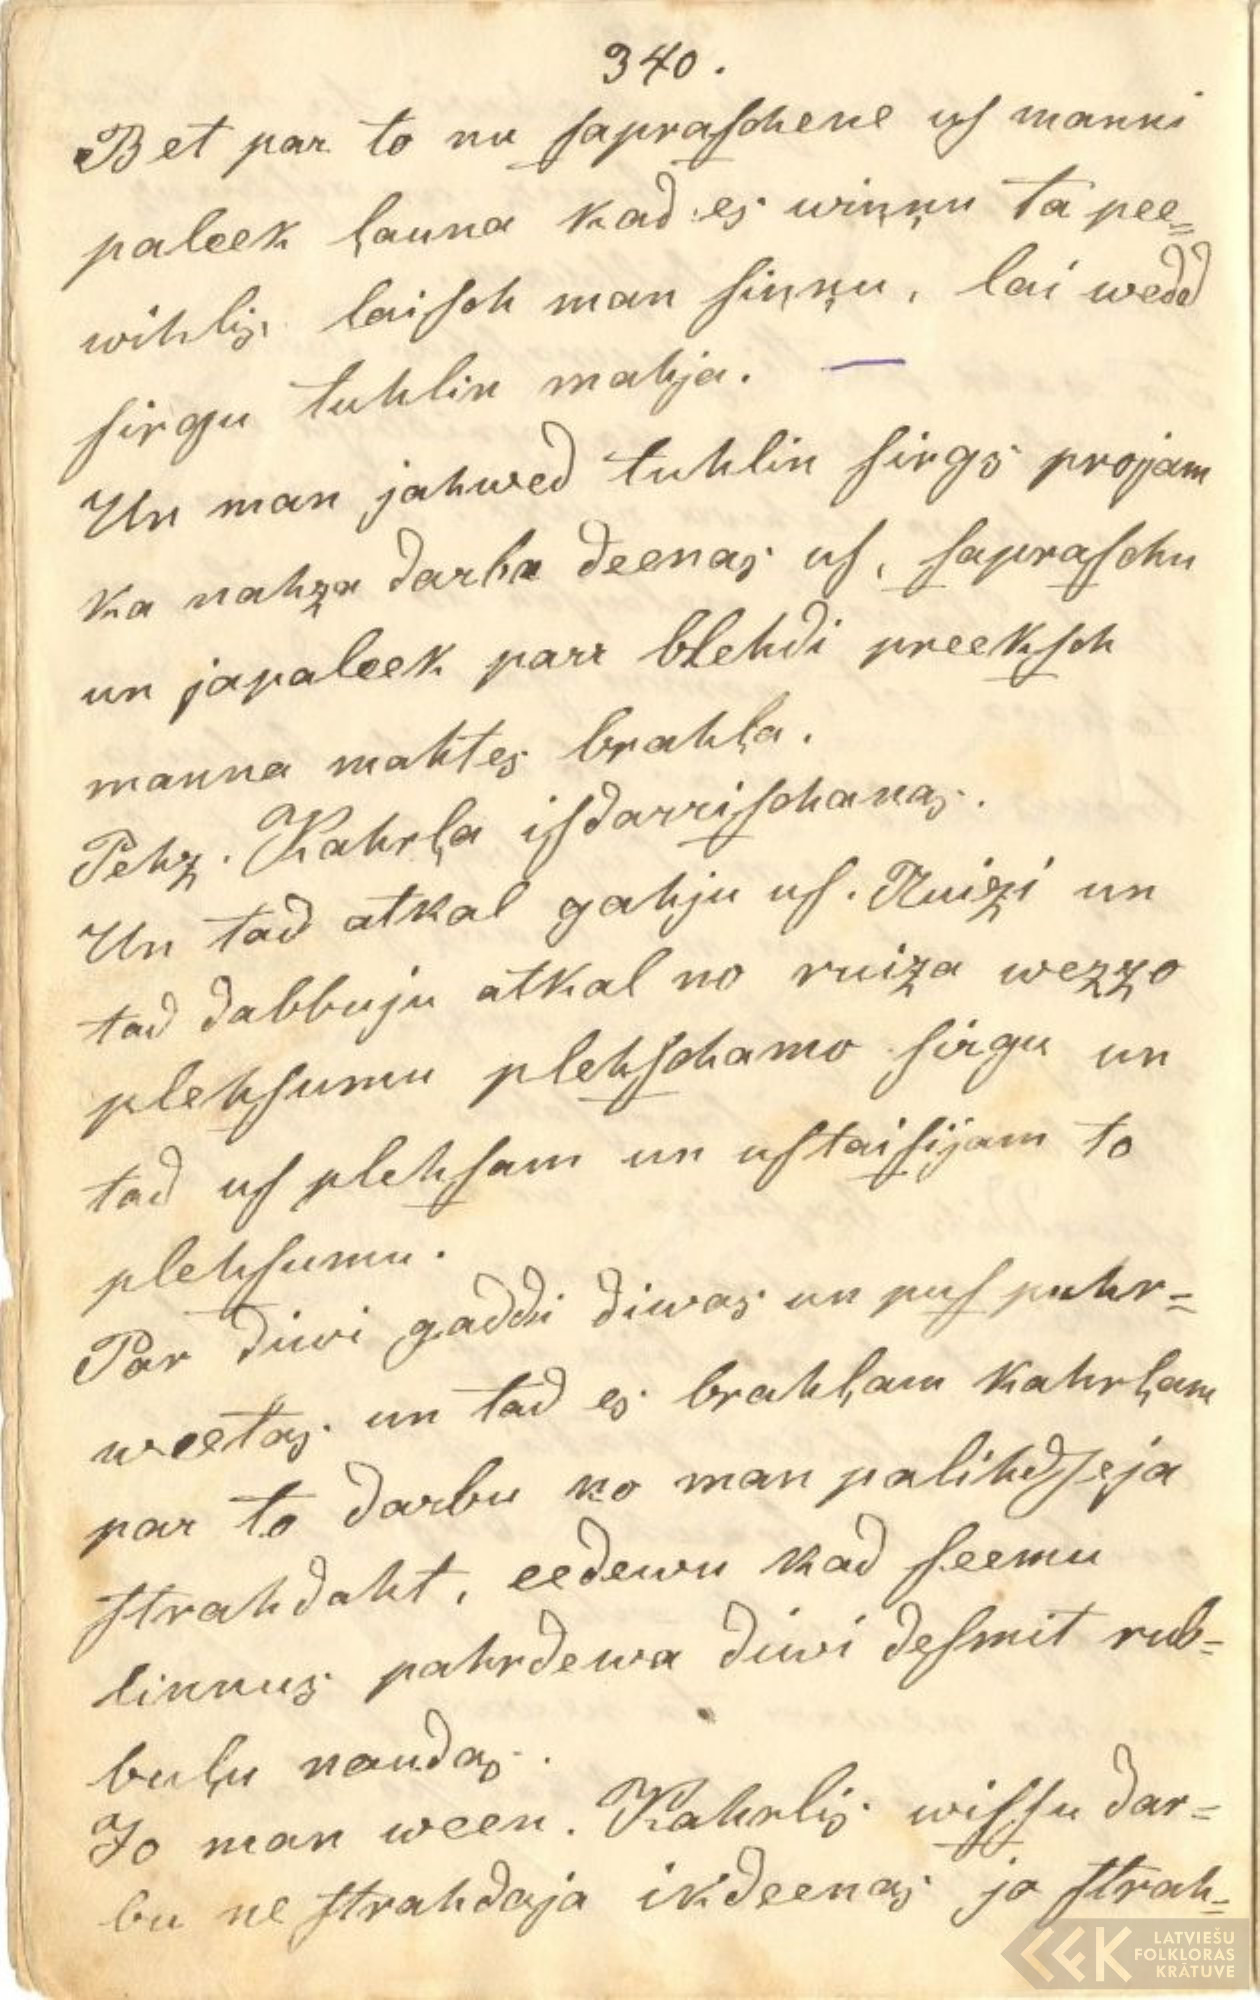 340.
Bet par to nu ſapraſchene uſ manni
paleek ļauna kad es wiņņu ta pee=
wihlis, laiſch man ſiņņu, lai wedd
ſirgu tuhlin mahja. —
Un man jahwed tuhlin ſirgs projam
ka nahza darba deenas uſ, ſapraſchu
un japaleek parr blehdi preekſch
manna mahtes brahļa.
Pehz. Kahrļa iſdarriſchanas.
Un tad atkal gahju uſ. Ruizi un
tad dabbuju atkal no ruiza wezzo
plehſumu plehſchamo ſirgu un
tad uſ plehſam un uſtaiſijam to
plehſumu.
Par diwi gaddi diwas un puſ puhr=
weetas. un tad es brahļam kahrļam
par to darbu ko man palihdſeja
ſtrahdaht, eedewu kad ſeemu
linnus pahrdewa diwi deſmit rub=
buļu naudas.
Jo man ween. Kahrlis wiſſu dar=
bu ne ſtrahdaja ikdeenas jo ſtrah=
LATVIEŠU
FOLKLORAS
KRĀTUVE